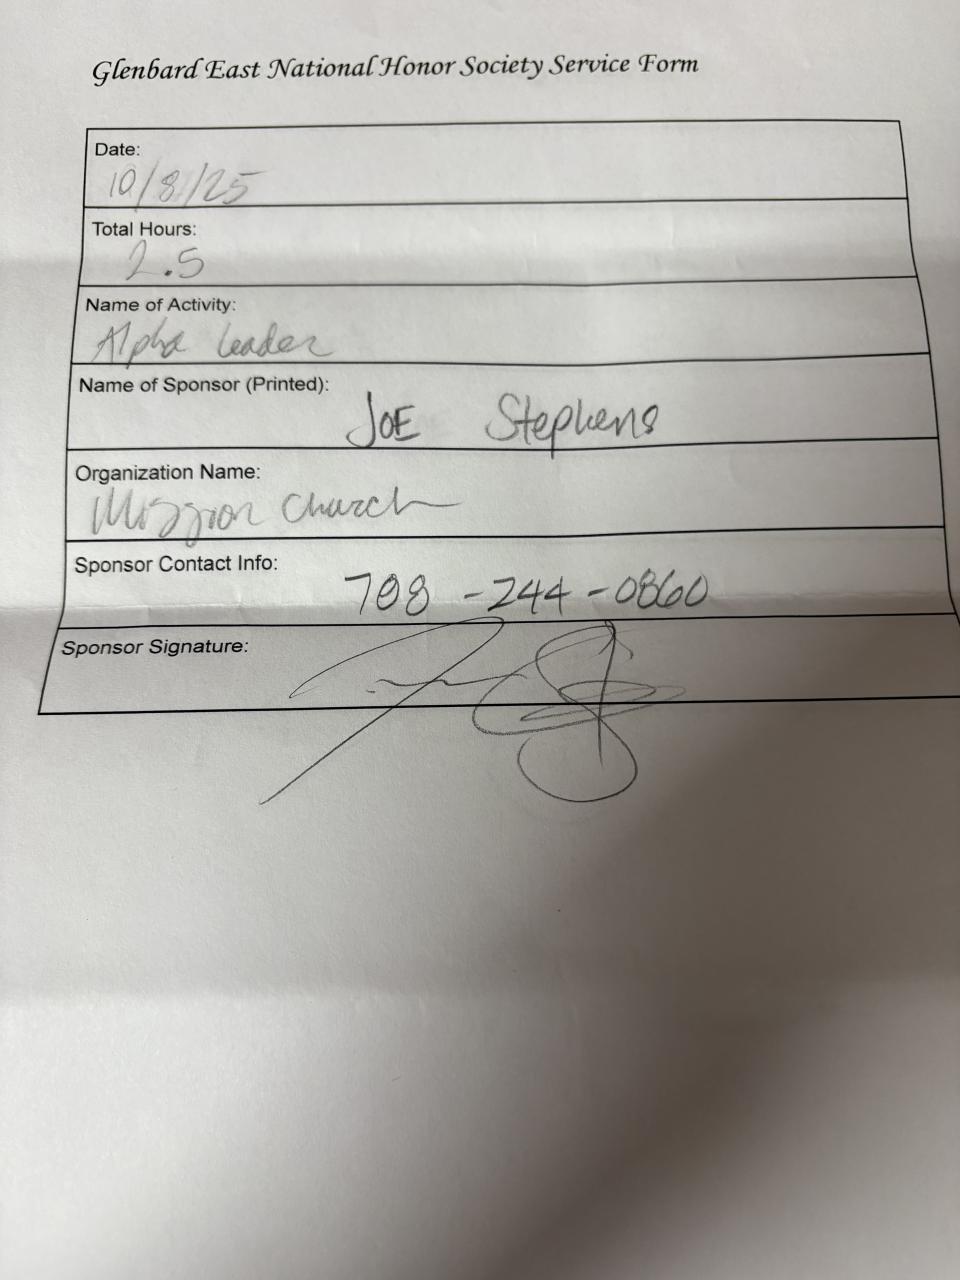 Glenbard East National Honor Society Service Form
Date:
10/8/25
Total Hours:
2.5
Name of Activity:
Alpha Leader
Name of Sponsor (Printed):
JOE Stephens
Organization Name:
Mission Church
Sponsor Contact Info:
708-244-0860
Sponsor Signature: